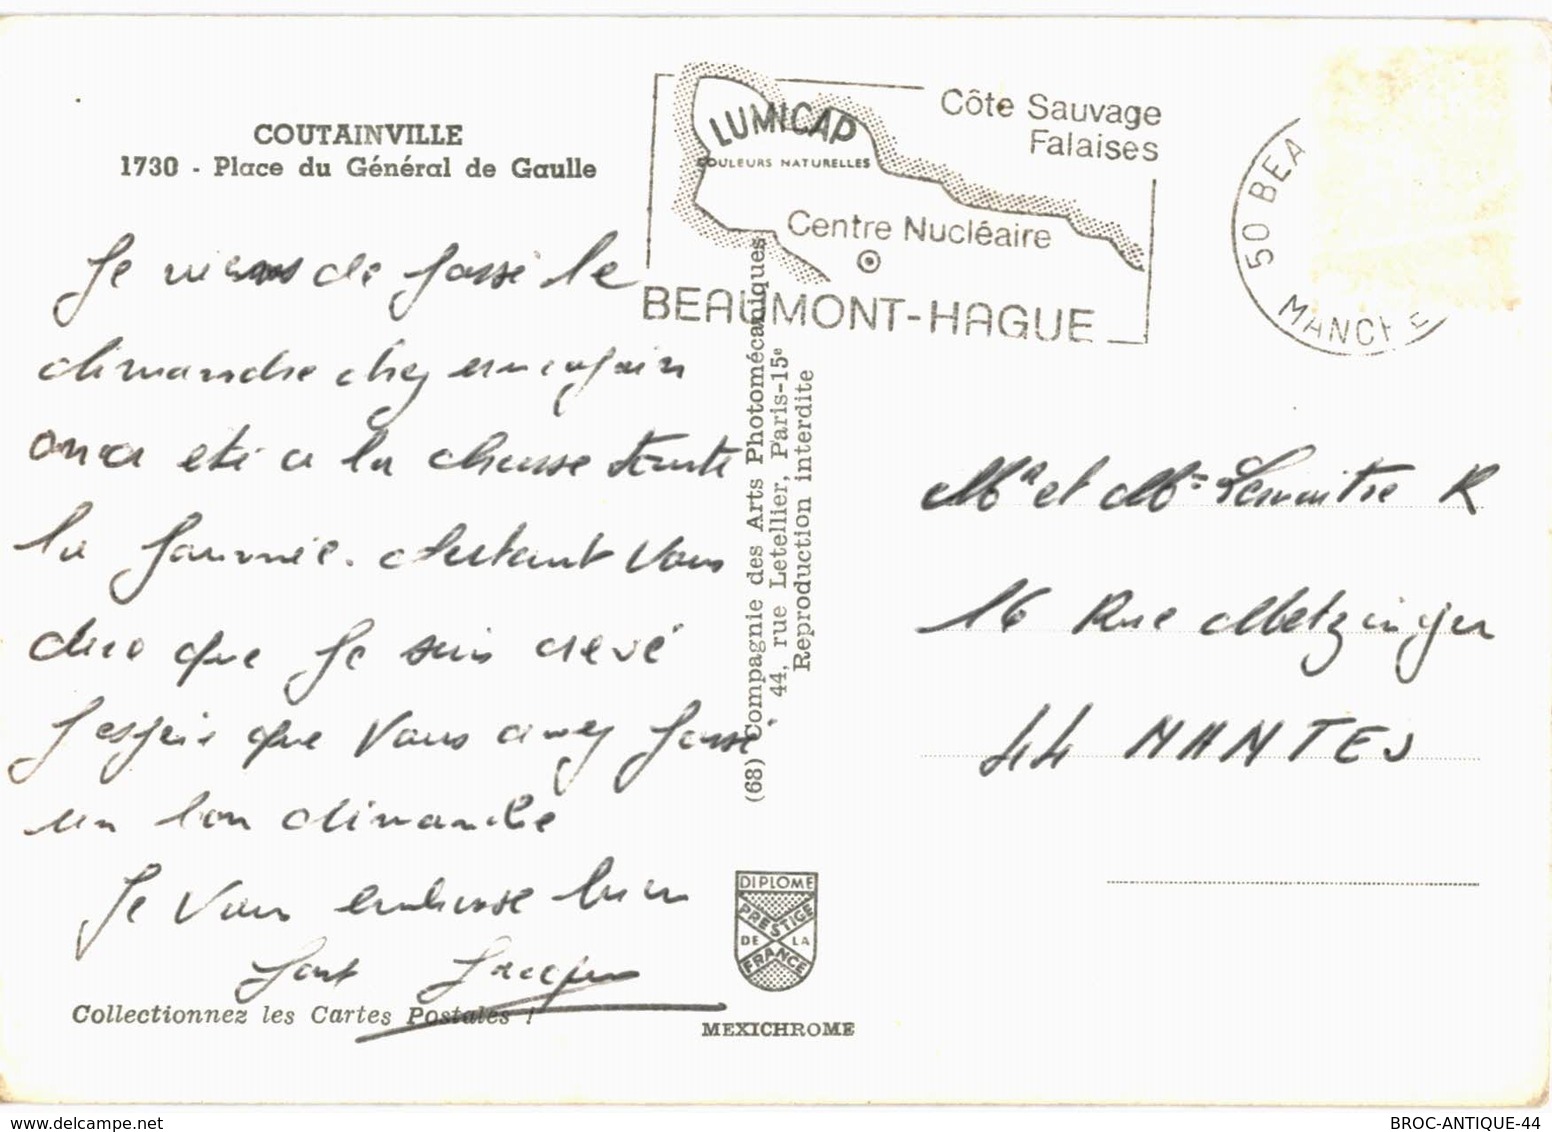 COUTAINVILLE
1730 - Place du Général de Gaulle
Je viens de passé le
dimanche chez un copain
on a été a la chasse toute
la journée. Autant vous
dire que je suis crevé
J'espère que vous avez passé
un bon dimanche
Je vous embrasse bien
fort Jacques
Collectionnez les Cartes Postales !
LUMICAP
COULEURS NATURELLES
Côte Sauvage
Falaises
Centre Nucléaire
BEAUMONT-HAGUE
50 BEA
MANCHE
(68) Compagnie des Arts Photomécaniques
44, rue Letellier, Paris-15e
Reproduction interdite
Mr et Mme Lemaitre R
16 Rue Metzinger
44 NANTES
DIPLOME
PRESTIGE
DE LA
FRANCE
MEXICHROME
www.delcampe.net
BROC-ANTIQUE-44